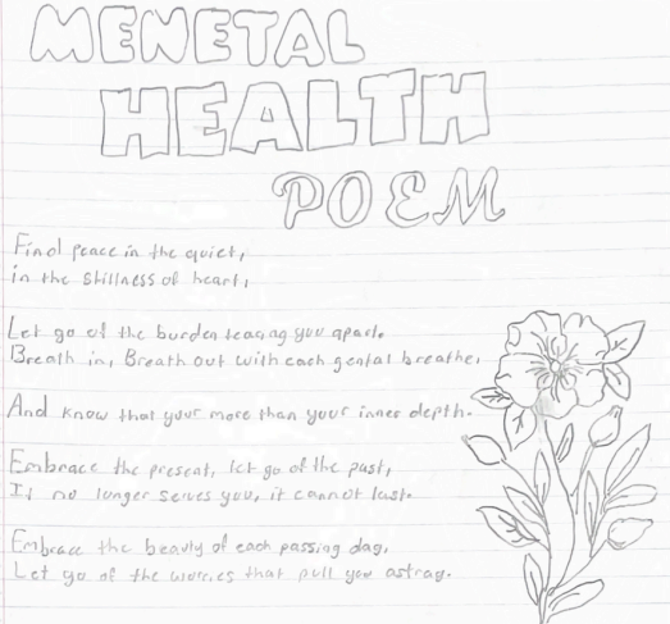 MENETAL
HEALTH
POEM
Find peace in the quiet,
in the stillness of heart,
Let go of the burden tearing you apart.
Breath in, Breath out with each gental breathe,
And know that your more than your inner depth.
Embrace the present, let go of the past,
It no longer serves you, it cannot last.
Embrace the beauty of each passing day,
Let go of the worries that pull you astray.